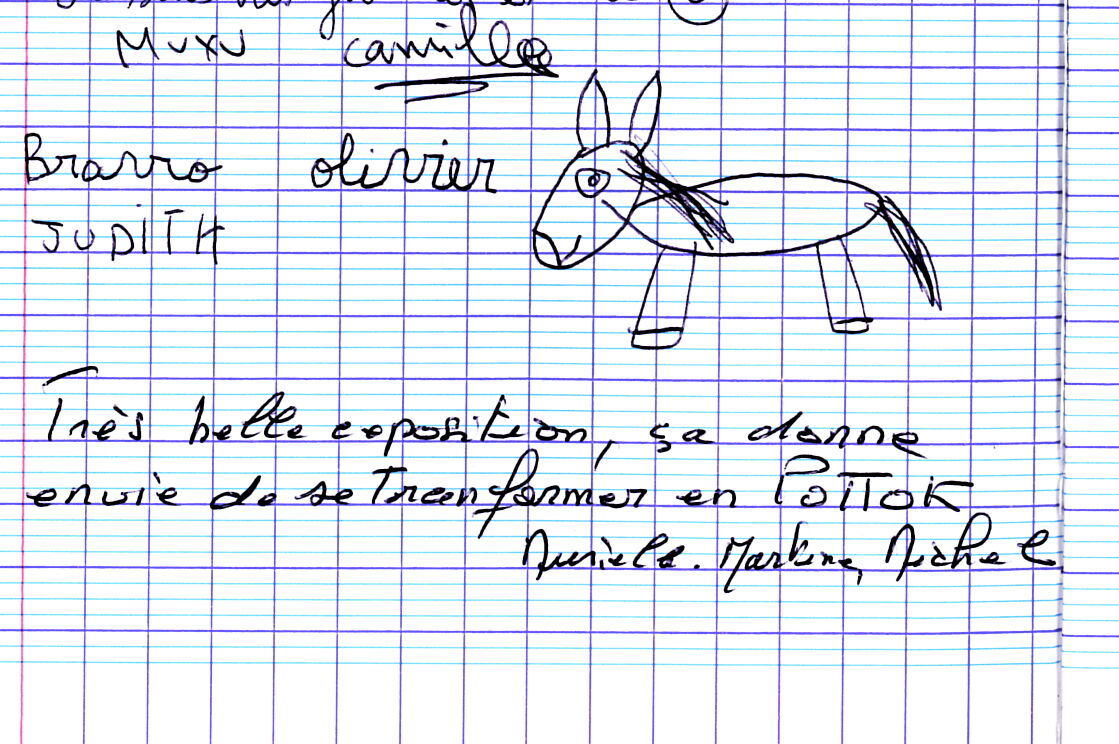 Muxu camille
Bravvo olivier
JUDiTH
Très belle exposition, ça donne
envie de se Transformer en PoTToK
Muriele. Martine, Michel